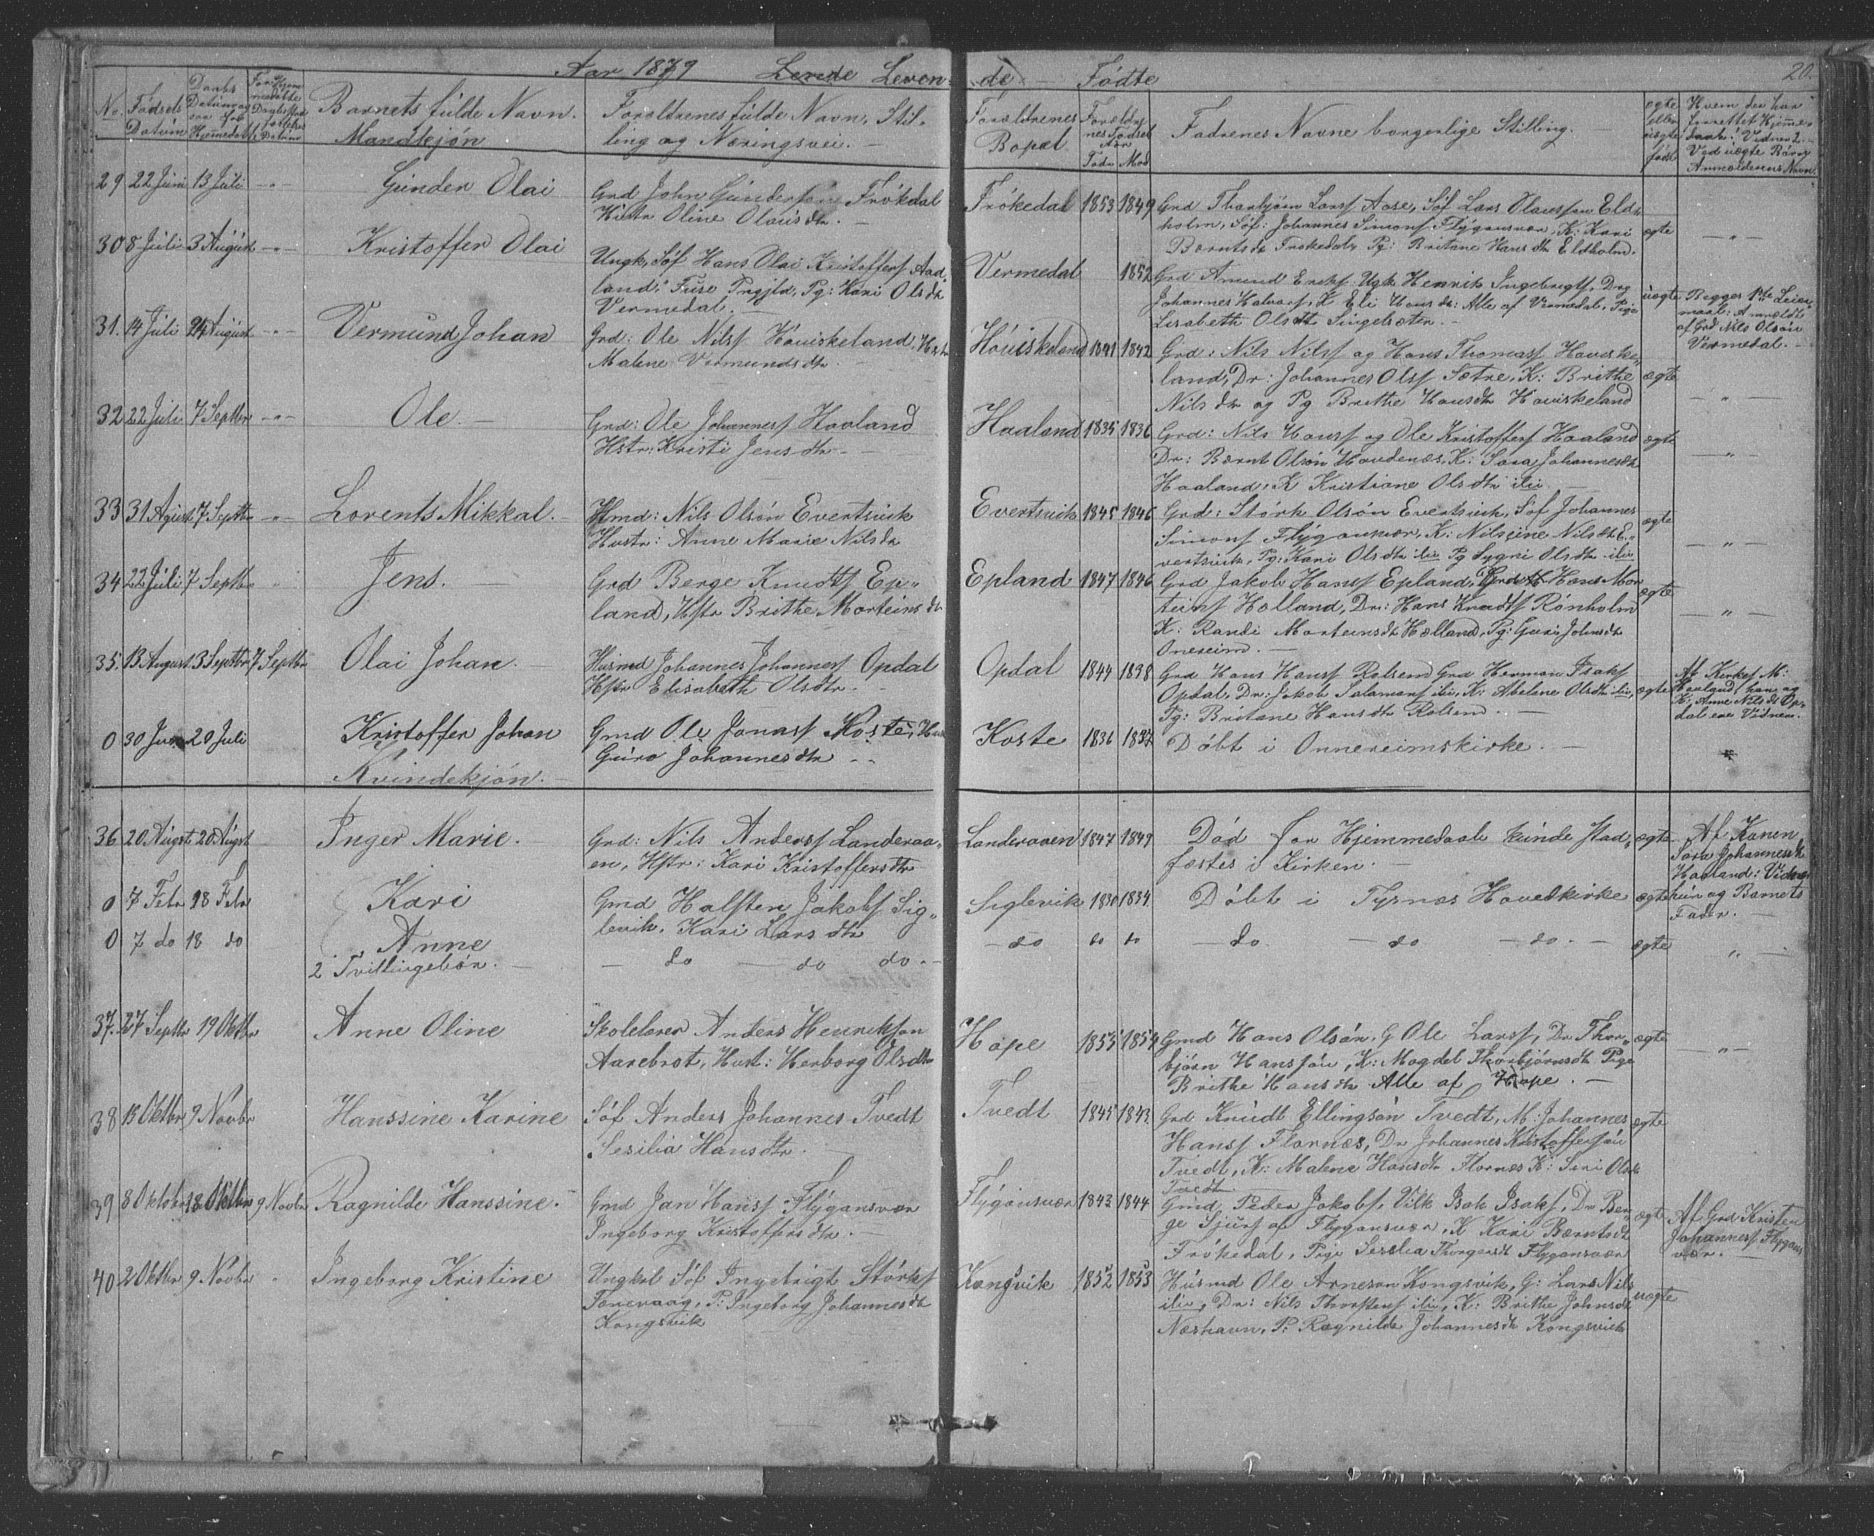 Aar 1879 Levende Fødte 20.
No. Fødsels Datum Daabs Datum Barnets fulde Navn. Forældrenes fulde Navn, Stilling og Næringsvei. Forældrenes Bopæl Forældrenes Fødsels Aar Fadr Mod Fadrenes Navne borgerlige Stilling. ægte eller uægte født Hvem der har forrettet Hjemmedaab: Vidner 2. Ved uægte Børn Anmelderens Navn.
Mandkjøn
29 22 Juni 13 Juli -"- Gunder Olai
Grd John Gundersøn Frøkdal
Hustr Oline Olausdtr. -
Frøkedal 1853 1849
Grd Tharbjørn Larss Aase, Søf Lars Olaussen Eld-
holm, Søf: Johannes Simons Flygansvær, K: Kari
Bærntsdt Frøkedal, Pg: Britane Hansdtr Eldholm.
ægte - " -
30 8 Juli 3 August -"- Kristoffer Olai
Ungk, Søf Hans Olai Kristoffers Aad-
land, Fuse Prgjld, Pg: Kari Olsdtr
Vermedal. -
Vermedal 1852
Grd Amund Eriks Ugk Henrik Ingebrigts, Dr
Johannes Halvors, K Eli Hansdtr: Alle af Vermedal, Pige
Lisabeth Olsdtr Singelsæter. -
uægte Begges 1ste Leier-
maal: Anmeldt
af Grd Nils Olsøn
Vermedal. -
31. 14 Juli 24 August -"- Vermund Johan
Grd: Ole Nilss Høviskeland, Hstr
Malene Vermundsdtr -
Høviskeland 1841 1842
Grd: Nils Nilss og Hans Thomass Høviske-
land, Dr: Johannes Olss Sætre, K: Brithe
Nilsdtr og Pg Brithe Hansdtr Høviskeland
ægte - " -
32 22 Juli 7 Septbr -"- Ole. -
Grd: Ole Johanness Haaland
Hstr: Kristi Jensdtr. -
Haaland 1835 1836
Grd: Nils Hanss og Ole Kristoffers Haaland
Dr: Bærnt Olsøn Havdenæs, K: Sara Johannesdtr
Haaland, K Kristiane Olsdtr ibi. -
ægte - " -
33 31 Agust 7 Septbr -"- Lorents Mikkal. -
Hmd: Nils Olsøn Evertsvik
Hustr: Anne Marie Nilsdtr
Evertsvik 1845 1846
Grd: Størk Olsøn Evertsvik, Søf Johannes
Simons Flygansvær, K: Nilsine Nilsdt E-
vertsvik, Pg: Kari Olsdtr ibi Pg Sygni Olsdtr ibi
ægte - " -
34 22 Juli 7 Septbr " Jens. -
Grd Berge Knudts Ep-
land, Hstr Brithe Morteinsdtr
Epland 1847 1846
Grd Jakob Hanss Epland, Grd Hans Mor
teins Hælland, Dr: Hans Knudts Rønholm
K: Randi Morteinsdt Hælland, Pg: Guri Johnsdtr
Oneseim. -
ægte - " -
35. 13 August 3 Septbr 7 Septbr Olai Johan.
Husmd Johannes Johanness Opdal
Hstr Elisabeth Olsdtr. -
Opdal 1844 1838
Grd Hans Hanss Rolsend Grd Herman Isaks
Opdal, Dr: Jakob Salamons ibi, K: Abelene Olsdtr ibi,
Pg: Britane Hansdtr Rolsend. -
ægte Af Kirkes M:
Haaland, han og
K: Anne Nilsdt Op-
dal ere Vidner.
0 30 Jun 20 Juli Kristoffer Johan
Gmd Ole Jonass Koste, Hus
Guro Johannesdtr - -
Koste 1836 1837
Døbt i Onnereimskirke. -
Kvindekjøn. -
36 20 Augst 20 Augst Inger Marie.
Grd: Nils Anderss Landeraa-
en, Hstr: Kari Kristoffersdtr
Landeraaen 1847 1849
Død før Hjemmedaab kunde Stad-
fæstes i Kirken. -
ægte Af Konen
Sara Johannesdt
Haaland: Vidner
hun og Barnets
Fader. -
0 7 Febr 18 Febr Kari
Gmd Halsten Jakobs Sig-
levik, Kari Larsdtr
Siglevik 1830 1834
Døbt i Tysnes Hovedkirke ægte
0 7 do 18 do Anne
- do - do do. -
- do do do - do. - do - do. - ægte " -
2 Tvillingebørn. -
37. 27 Septbr 19 Oktbr Anne Oline
Skolelærer Anders Henriksøn
Aarebrot, Hust: Herborg Olsdtr
Hope 1853 1854
Gmd Hans Olsøn, G Ole Larss, Dr. Thor-
bjørn Hanssøn, K: Magdel Thorbjørnsdt Pige
Brithe Hansdtr Alle af Hope. -
ægte - " -
38 13 Oktbr 9 Novbr Hanssine Karine
Søf Anders Johannes Tvedt
Sesilia Hansdtr. -
Tvedt 1845 1843
Grd Knudt Ellingsøn Tvedt, M: Johannes
Hanss Flornæs, Dr Johannes Kristoffersøn
Tvedt, K: Malene Hansdtr Flornes K: Siri Olsdt
Tvedt
ægte
39 8 Oktobr 18 Oktbr 9 Novbr Ragnilde Hanssine. -
Gmd Jan Hanss Flygansvær
Ingeborg Kristoffersdtr. -
Flygansvær 1843 1844
Gmd Peder Jakobs, Vilk Isak Isaks, Dr Ber-
ge Sjurs af Flygansvær, K Kari Bærntsdt
Frøkedal, Pige Sesilia Thorgersdt Flygansvær
ægte Af Grd Kristen
Johanness Flygans
vær. -
40 2 Oktbr 9 Novbr " Ingeborg Kristine
Ungkl Søf Ingebrigt Størks
Tønevaag, P: Ingeborg Johannesdt
Kongsvik
Kongsvik 1852 1853
Husmd Ole Arneson Kongsvik, G: Lars Nils
ibi, Dr: Nils Thorstens ibi, K: Brithe Johnsdt
Næshavn, P: Ragnilde Johannesdt Kongsvik
uægte